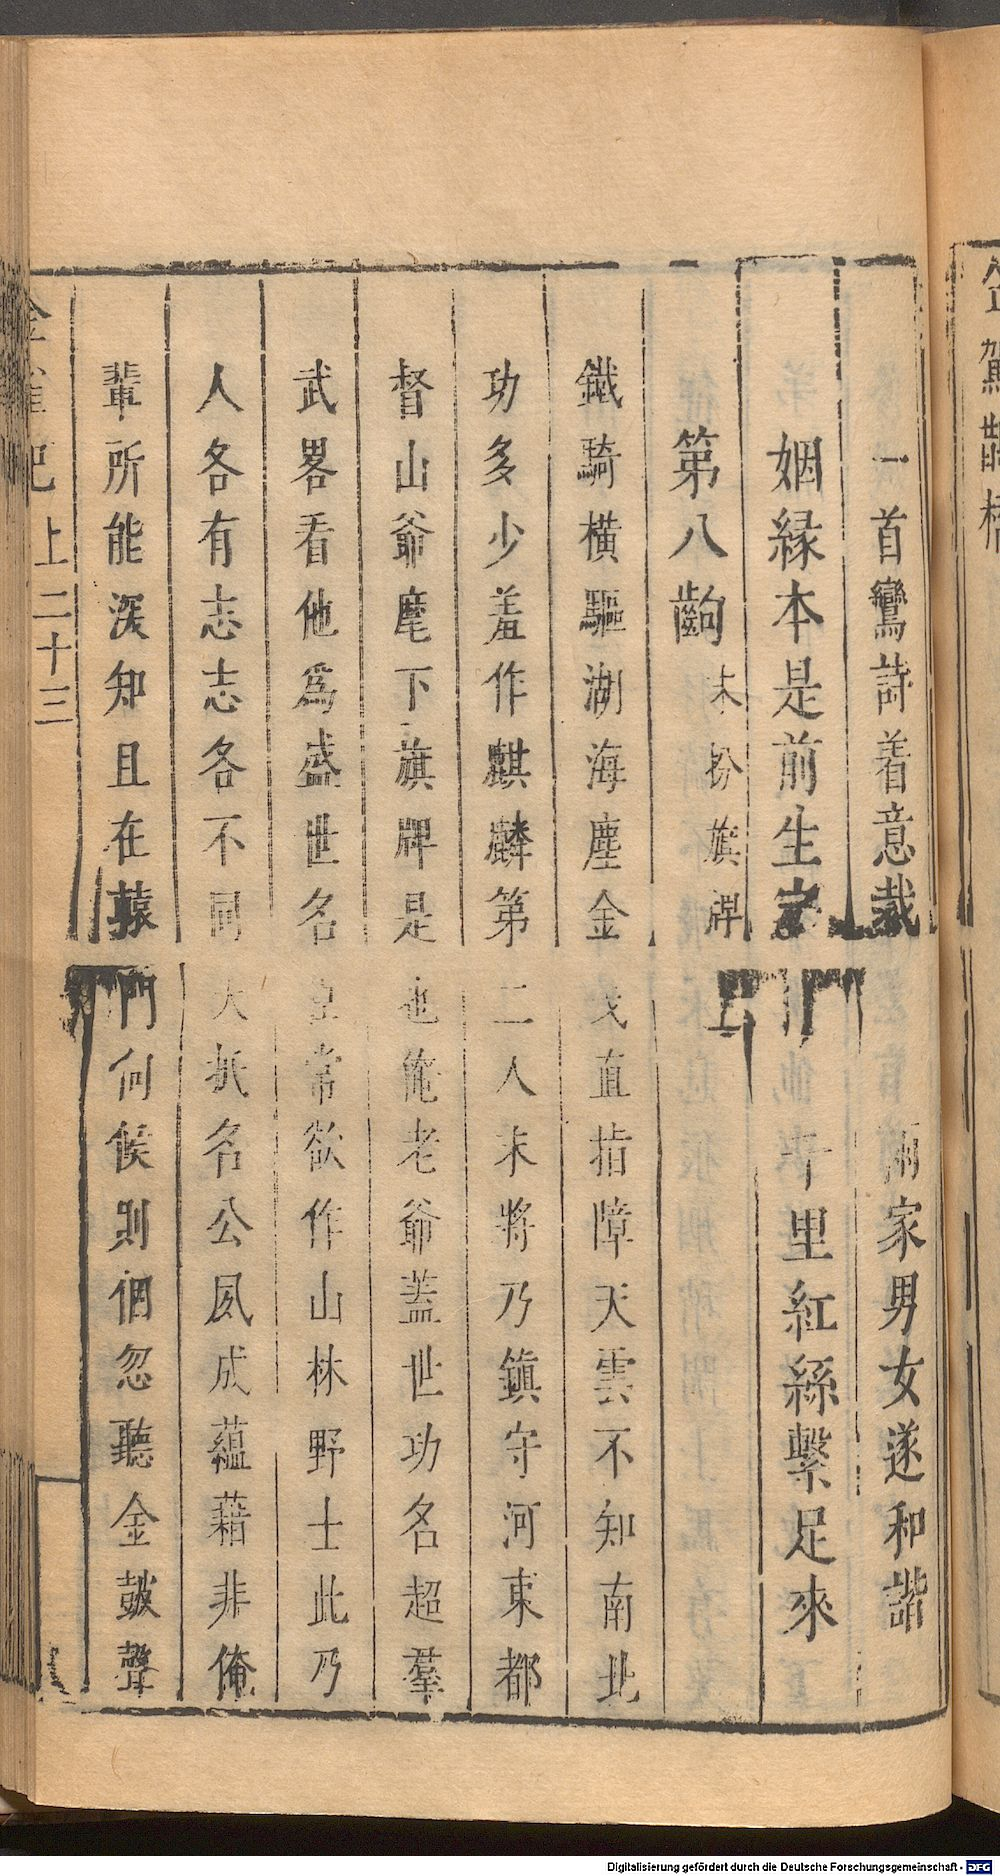 一首鸞詩着意裁　兩家男女遂和諧
姻緣本是前生定　千里紅絲繫足來
第八齣 末扮旗牌上
鐵騎橫驅湖海塵金戈直指障天雲不知南北
功多少羞作麒麟第二人末將乃鎮守河東都
督山爺麾下旗牌是也俺老爺蓋世功名超羣
武畧看他爲盛世名臣常欲作山林野士此乃
人各有志志各不同大抵名公夙成蘊藉非俺
輩所能深知且在轅門伺候則個忽聽金皷聲
記 上 二十三
Digitalisierung gefördert durch die Deutsche Forschungsgemeinschaft - DFG